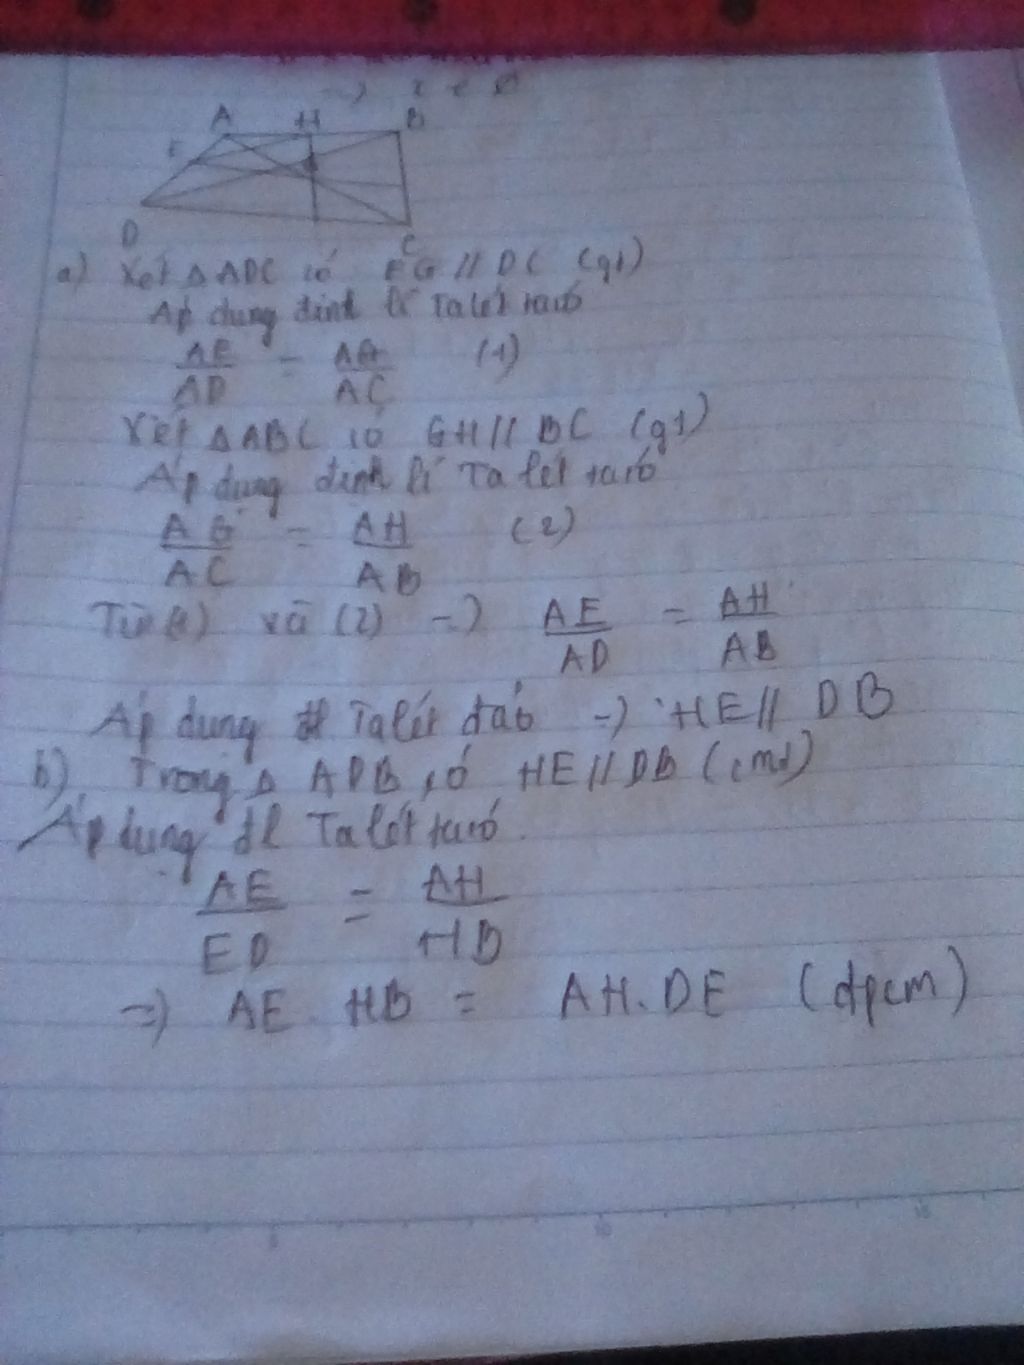 A H B
E
D C
a) Xét Δ ADC có EG // DC (gt)
Áp dụng định lí Ta lét ta có
AE/AD = AG/AC (1)
Xét Δ ABC có GH // BC (gt)
Áp dụng định lí Ta lét ta có
AG/AC = AH/AB (2)
Từ (1) và (2) => AE/AD = AH/AB
Áp dụng đl Ta lét đảo => HE // DB
b) Trong Δ ADB có HE // DB (cmt)
Áp dụng đl Ta lét ta có
AE/ED = AH/HB
=> AE . HB = AH . DE (đpcm)
5 10 15